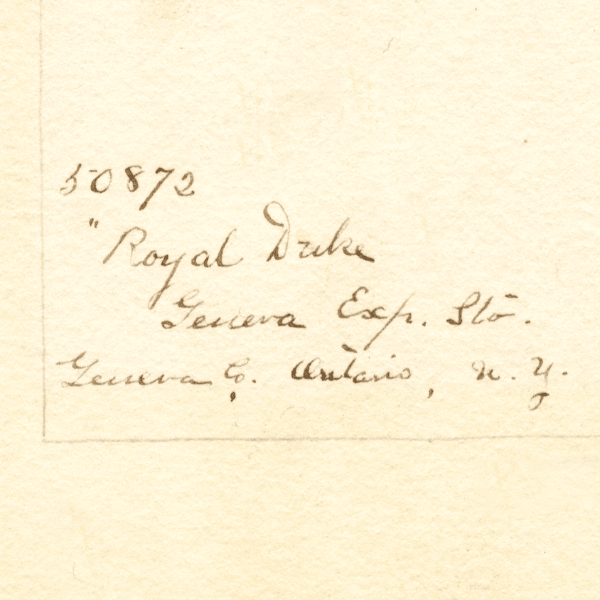 50872
"Royal Duke
Geneva Exp. Sta.
Geneva, Co. Ontario, N. Y.